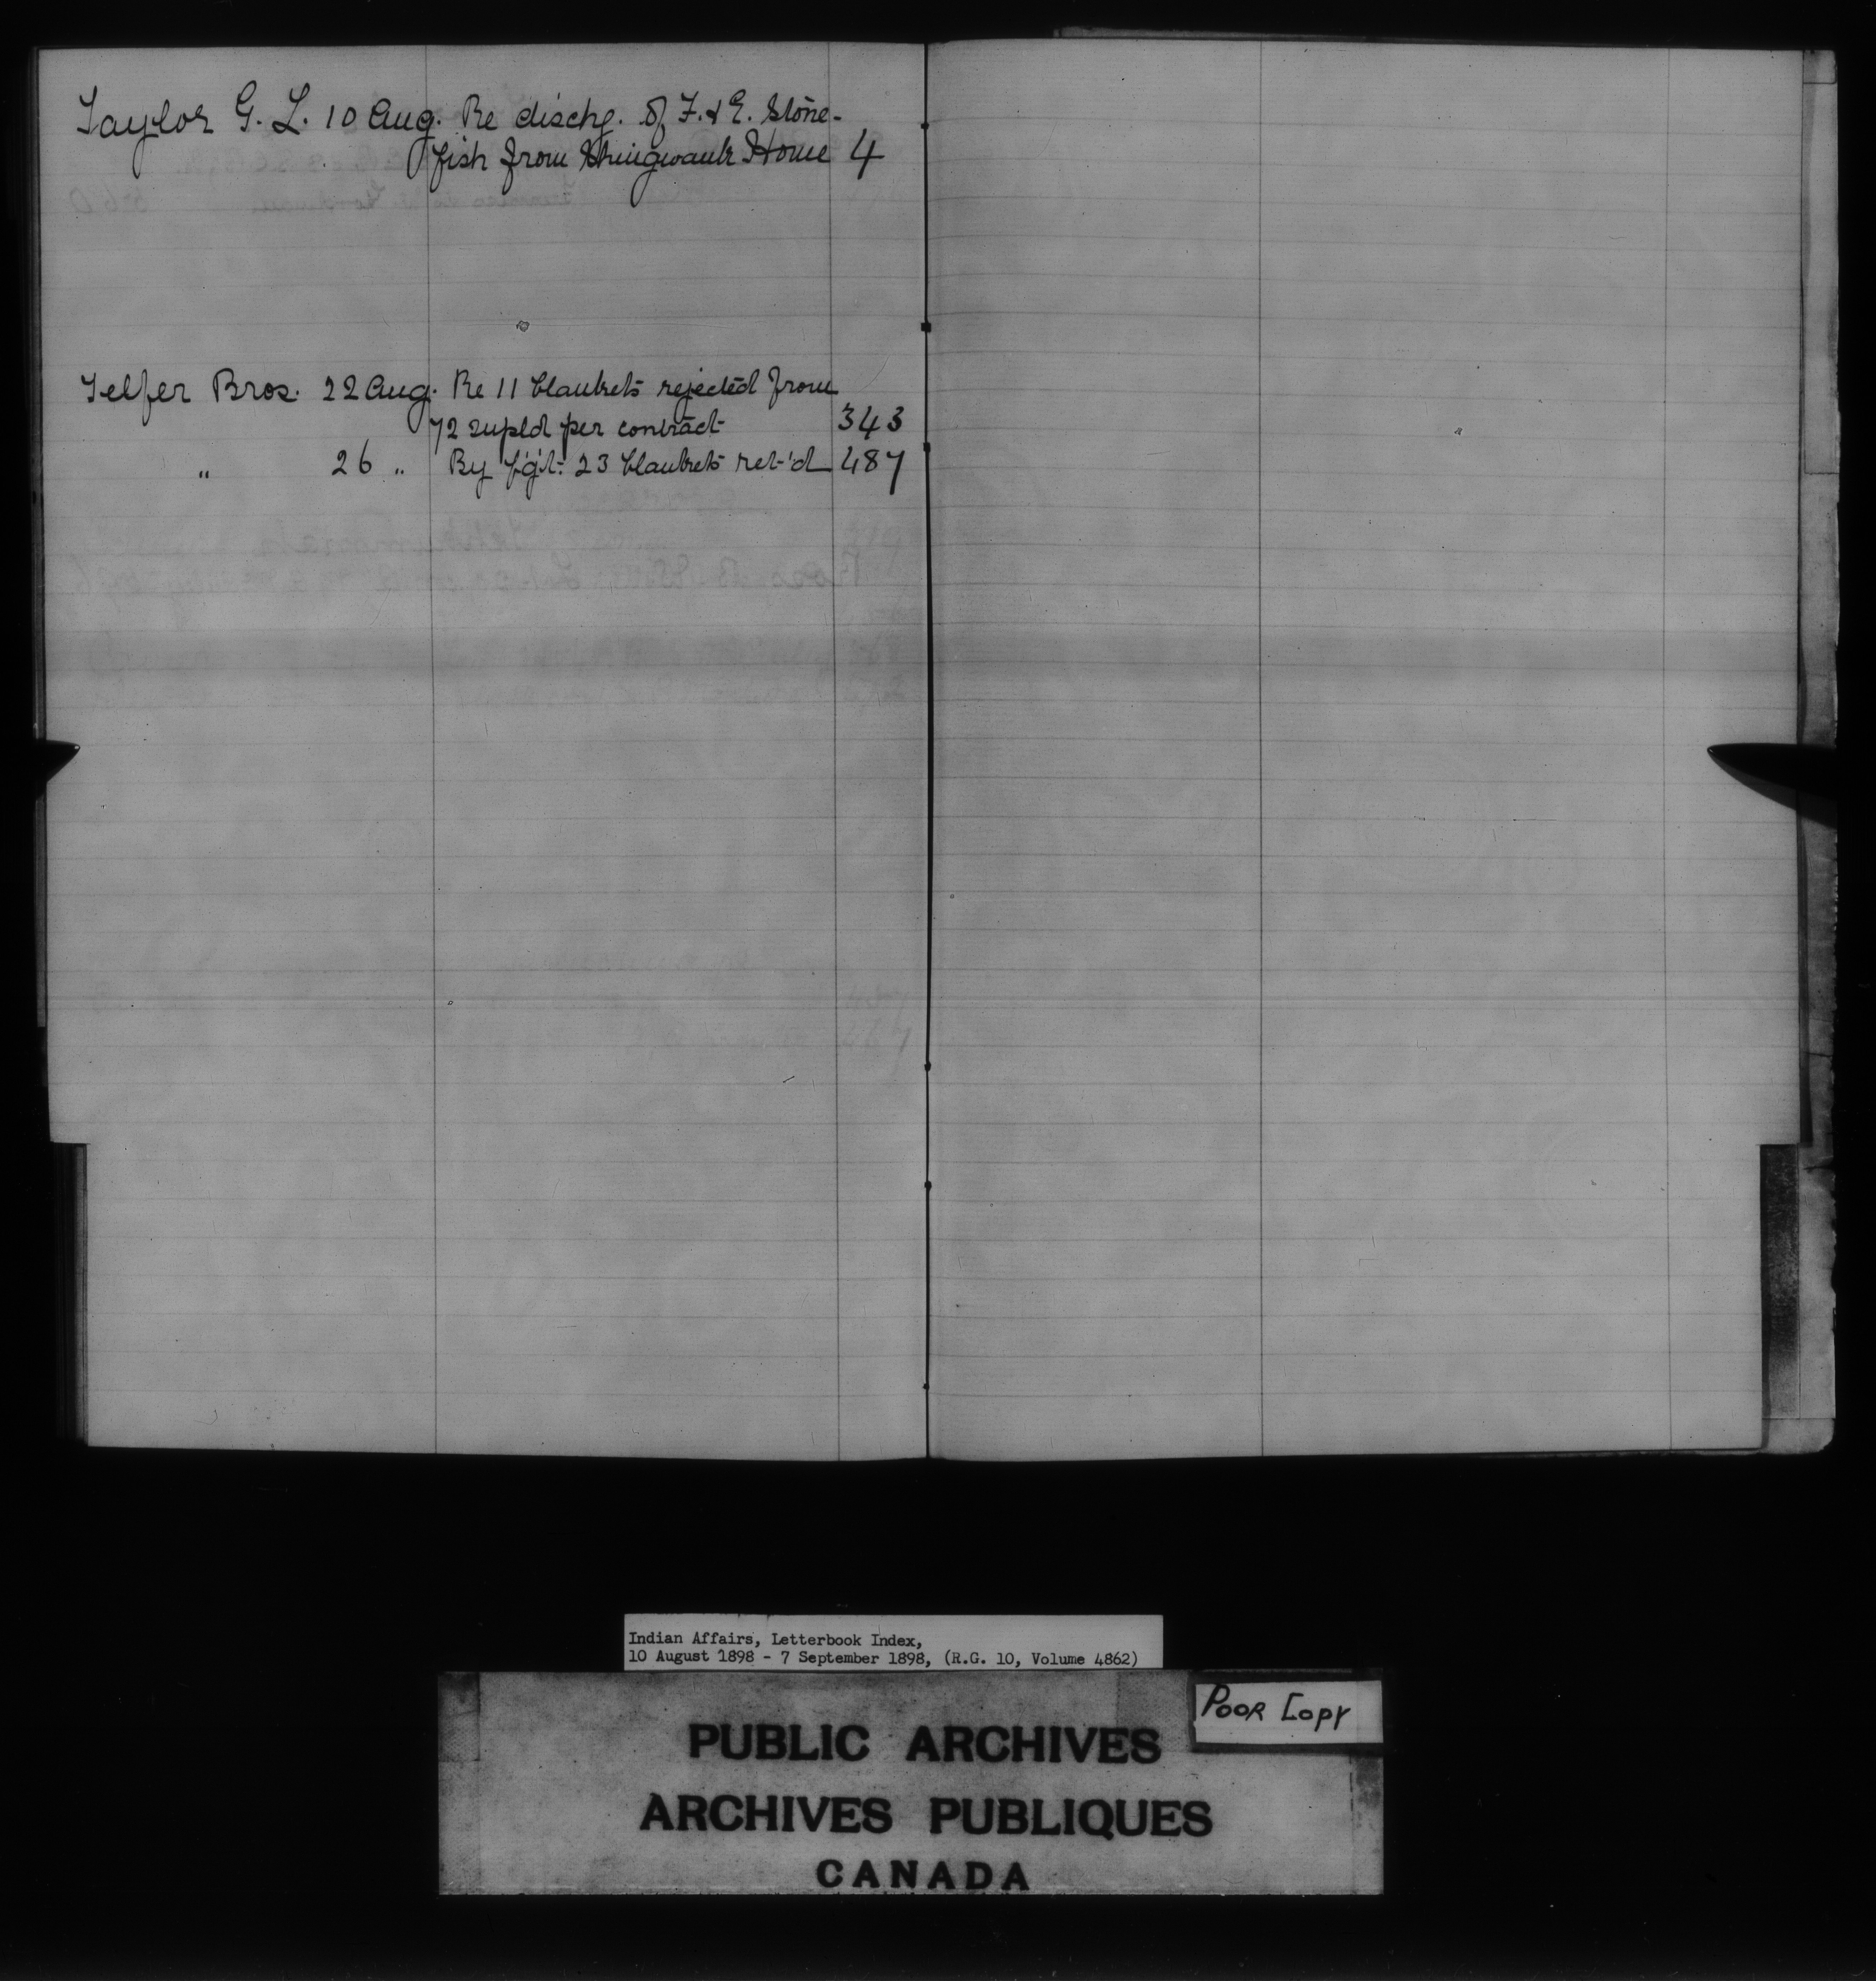 Taylor G. L. 10 Aug. Re dischg. of F. & E. Stone-
fish from Shingwauk Home 4
Telfer Bros. 22 Aug. Re 11 blankets rejected from
72 supld per contract 343
" 26 " By f'g't. 23 blankets ret'd 487
Indian Affairs, Letterbook Index,
10 August 1898 - 7 September 1898, (R.G. 10, Volume 4862)
POOR COPY
PUBLIC ARCHIVES
ARCHIVES PUBLIQUES
CANADA